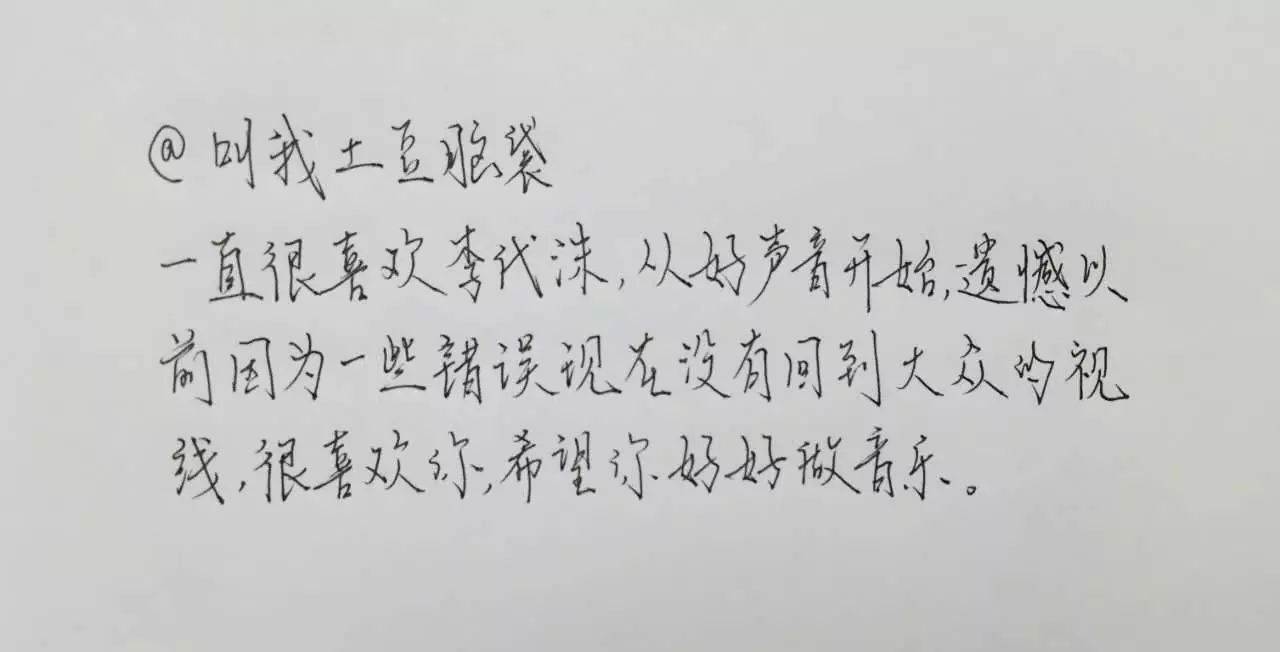 @叫我土豆脑袋
一直很喜欢李代沫,从好声音开始,遗憾以
前因为一些错误现在没有回到大众的视
线,很喜欢你,希望你好好做音乐。